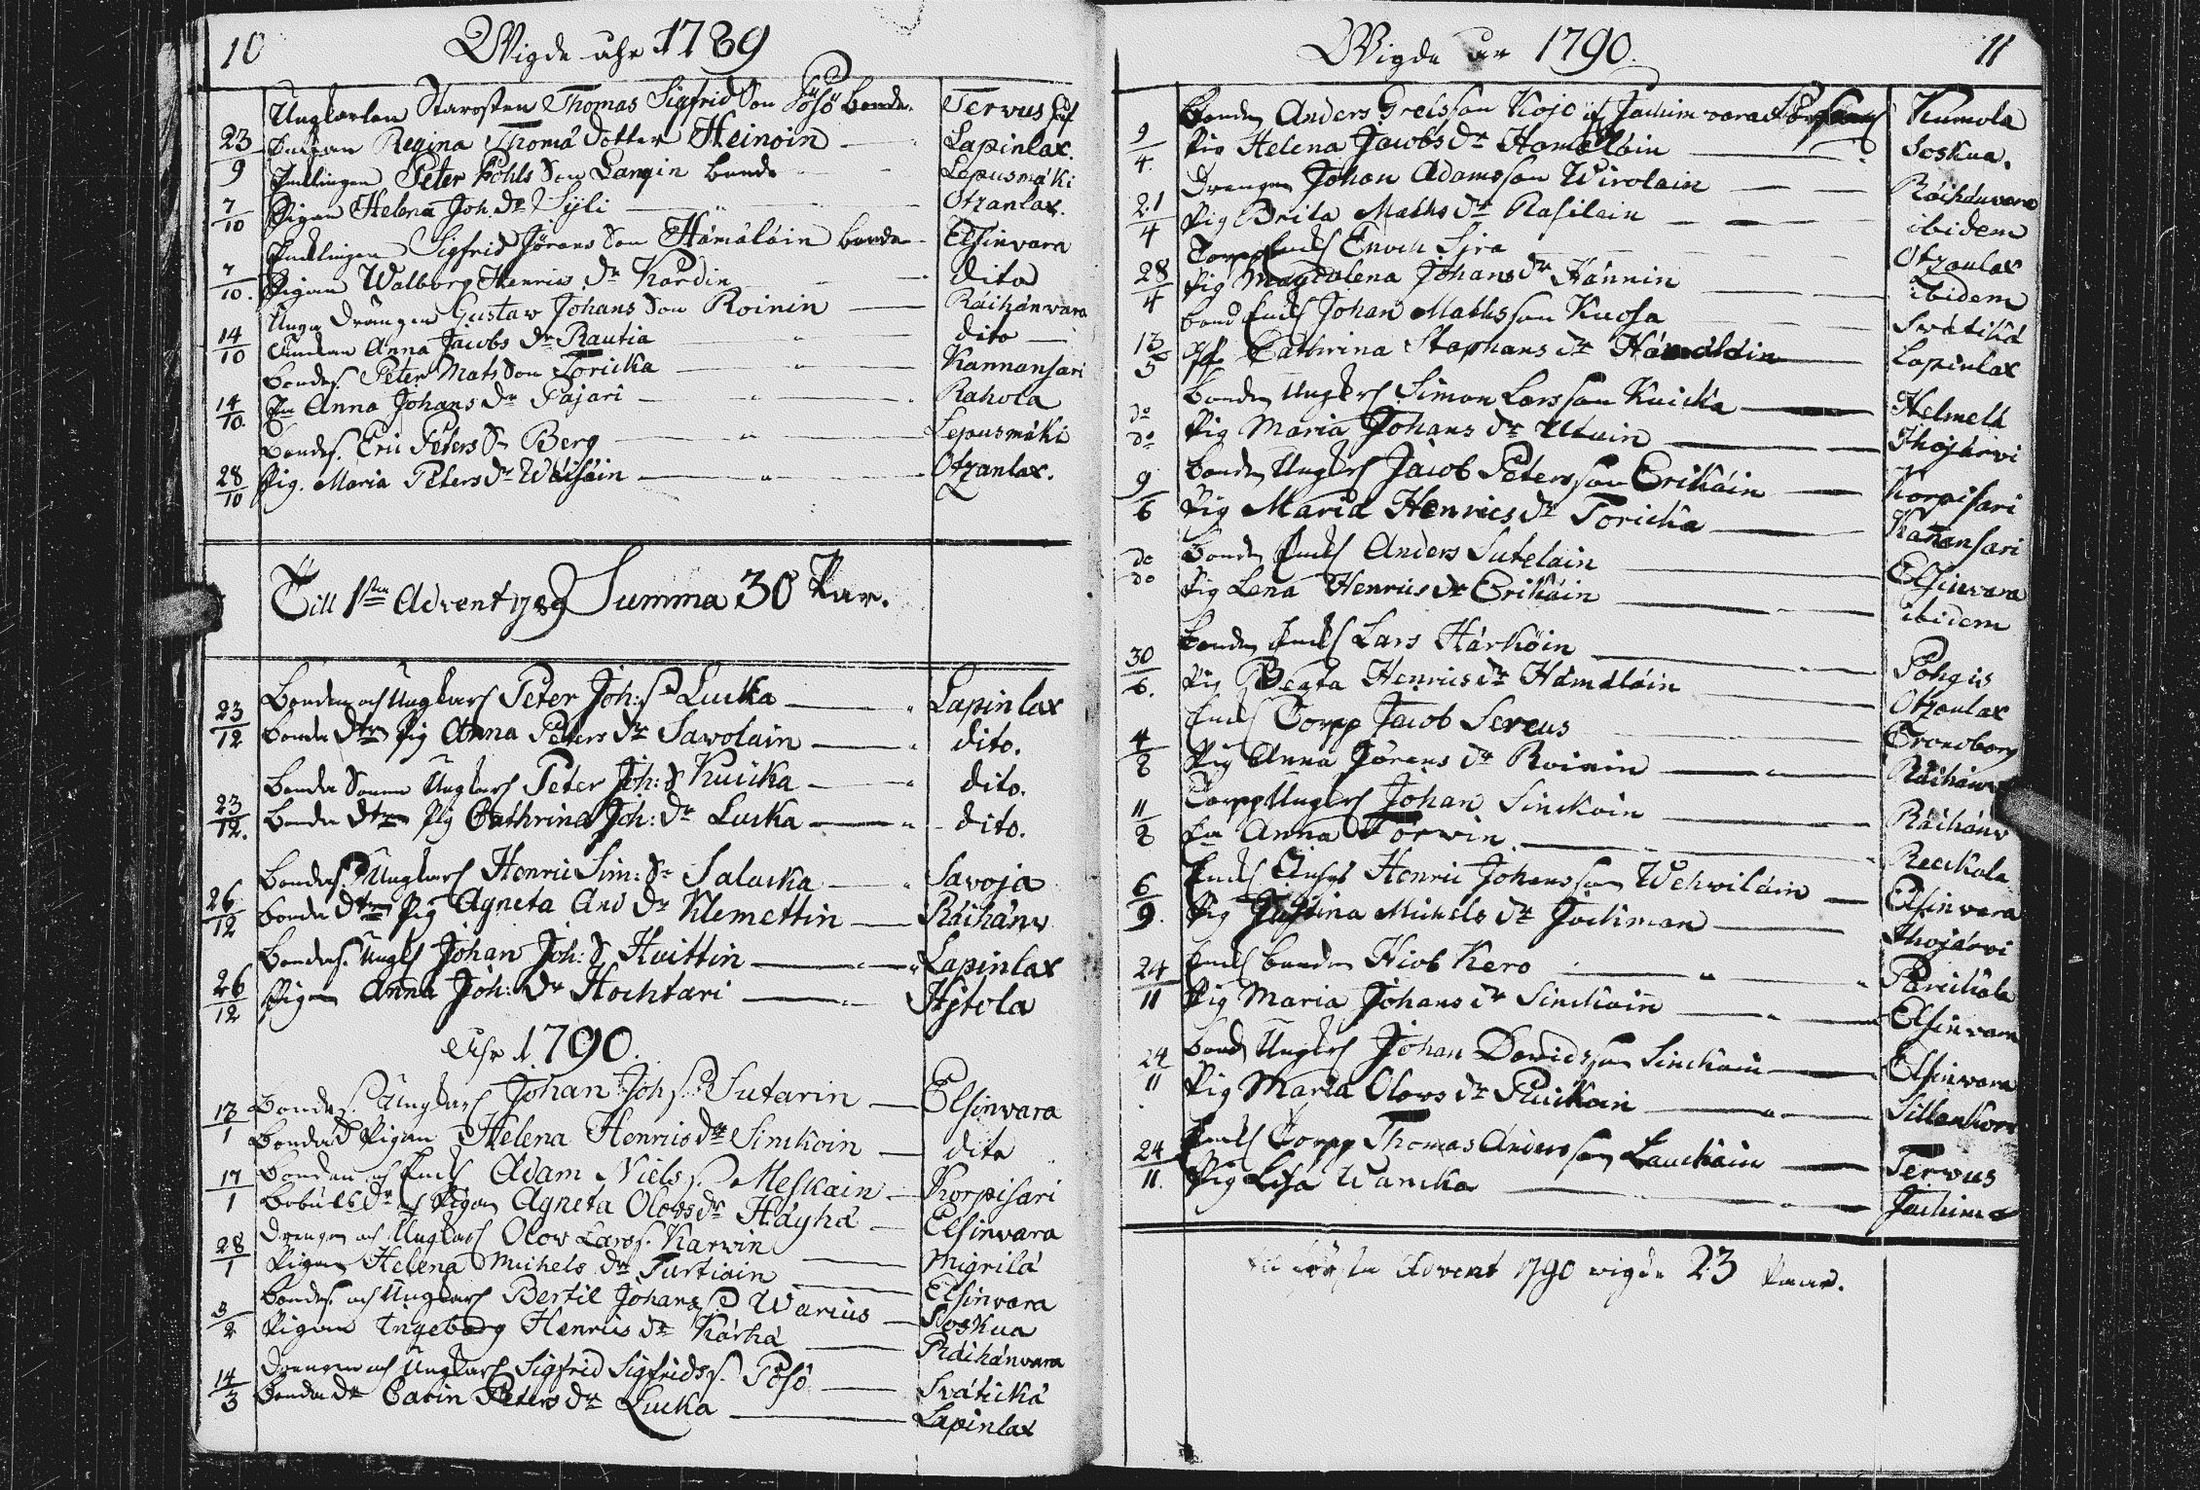 10
Wigde åhr 1789
Ungkarlen Starosten Thomas Sigfrid Son Pösö bonde. Tervus
23/9 Regina Thomä dotter Heinoin Lapinlax.
Enklingen Peter Påhls Son Langin bonde Lepusmäki
7/10 Pigan Helena Joh. Dr Syli Otzanlax.
Enklingen Sigfrid Jörans Son Hämäläin bonde Elsinvara
7/10. Pigan Walborg Henrics Dr Kärdin dito
Unga Drängen Gustaw Johans Son Roinin Räihänvara
14/10 Anna Jacobs Dr Rautia dito
Bondes. Peter Mats Son Toricka Kannansari
14/10 Anna Johans Dr Pajari Rahola
Bondes. Eric Peters S. Berg Lepusmäki
28/10 Pig. Maria Peters Dr Wäisäin Otzanlax.
Till 1sta Advent 1789 Summa 30 Par.
Bonden och Ungkarl Peter Joh: S. Lucka Lapinlax
23/12 Bonde dtr Pig Anna Peters Dr Savolain dito.
Bonde Sonen Ungkarl Peter Joh: S Kuicka dito.
23/12. Bonde dtr Pig Cathrina Joh: Dr Lucka dito.
Bondes. Ungkarl Henric Sim: S. Salacka Savoja
26/12 Bonde dtr Pig Agneta And Dr Klemettin Räihänv
Bondes. Ungk Johan Joh: S Huittin Lapinlax
26/12 Pigan Anna Joh: Dr Hochtari Hytola
Åhr 1790.
Bondes. Ungkarl Johan Joh S. Sutarin Elsinvara
13/1 Bonde d Pigan Helena Henrics dr Sinckoin dito
Bonden och Enkl Adam Niels S. Meskain Korpisari
17/1 Pigan Agneta Olofs dr Häyhä Elsinvara
Drengen och Ungkarl Olow Lars S. Karvin Migrilä
28/1 Pigan Helena Michels dr Turtiain Elsinvara
Bondes. och Ungkarl Bertil Johans S. Warius Soskua
3/2 Pigan Ingeborg Henrics dr Kärhä Räihänvara
Drengen och Ungkarl Sigfrid Sigfrids S. Pösö Svätickä
14/3 Bonde dr Carin Peters dr Lucka Lapinlax
11
Wigde år 1790.
Bonden Anders Grelsson Koje Jachimvara Kumola
9/4. Pig Helena Jacobs Dr Hämäläin Soskua.
Drengen Johan Adamsson Wirolain Räihänvara
21/4 Pig Brita Maths Dr Rasilain ibidem
Torp Enkl Enoch Sjra Otzanlax
28/4 Pig Magdalena Johans Dr Hännin ibidem
Bond Enkl Johan Mathsson Kuosa Svätikä
13/5 Cathrina Staphans dr Hämäläin Lapinlax
do Bonden Ungkarl Simon Larsson Kuicka Helmelä
do Pig Maria Johans dr Utuin Ihojärvi
Bonden Ungkarl Jacob Petersson Erikäin Korpisari
9/6 Pig Maria Henrics Dr Toricka Kanansari
do Bonden Enkl Anders Sutelain Elsinvara
do Pig Lena Henrics dr Erikäin ibidem
Bonden Enkl Lars Härköin Pohgis
30/6. Pig Beata Henrics dr Hämäläin Otzanlax
Enkl Torpp Jacob Sereus Cronoborg
4/8 Pig Anna Jörens dr Roinin Räihänv
Torpp Ungkarl Johan Sinckoin Räihänv
11/8 Anna Törvin. Reuckola
Enkl Henric Johansson Wehviläin Elsinvara
6/9. Pig Justina Michels dr Jachiman Ihojärvi
Enkl bonden Hiob Kero Parickala
24/11 Pig Maria Johans dr Sinckoin Elsinvara
Bond Ungkarl Johan Davidsson Sinckoin Elsinvara
24/11 Pig Maria Olovs dr Puickoin Sittenkorv
Enkl Torpp Thomas Andersson Lauckain Tervus
24/11. Pig Lisa Warcka Jachima
första Advent 1790 vigde 23 paar.